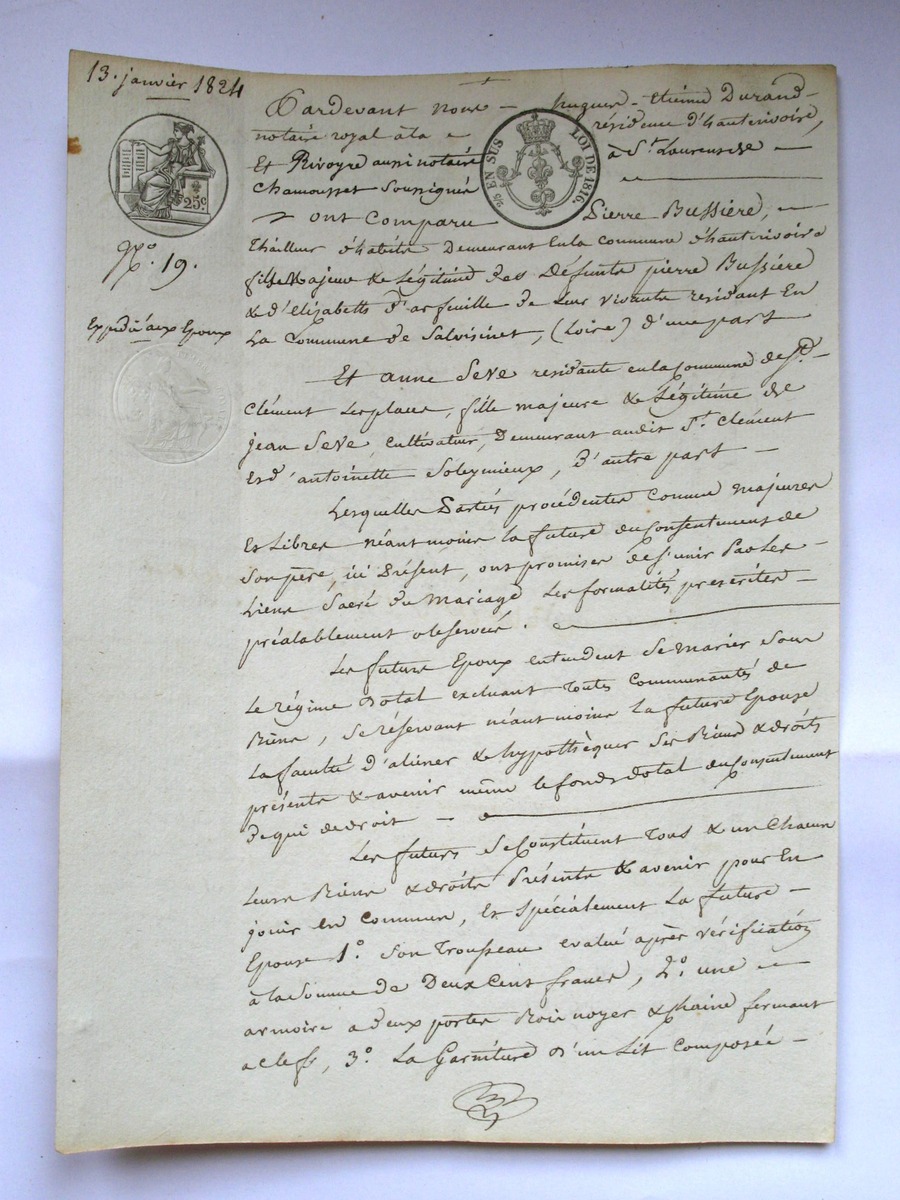 13. janvier 1824
25c
No. 19.
Expédié aux Epoux
25 EN SUS LOI DE 1816.
Pardevant Nous — hugues-Etiénne Durand-
notaire royal à la résidence d'hauterivoire,
Et Rivoyre aussi notaire à St. Laurens de
Chamousset Soussignés
ont Comparu Pierre Bussiére,
thailleur d'habits Demeurant En la commune d'hauterivoire
fils Majeur & Légitime des Défunts pierre Bussiére
& d'Elizabeth d'arfeuille de Leur vivants residant En
La Commune de Salvisinet, (Loire) d'une part
Et anne Seve residante en la Commune de St.
Clément Les places, fille majeure & Légitime de
jean Seve, Cultivateur, Demeurant audit St. Clément
Et d'antoinette Soleymieux, d'autre part —
Lesquelles Parties procédentes Comme majeures
Et Libres néantmoins la future du Consentement de
Son père, ici Présent, ont promises de S'unir Par Les
Liens Sacré du Mariage Les formalités prescrites —
préalablement observées.
Les futurs Epoux entendent Se marier Sous
Le régime Dotal excluant Toutes Communautés de
Biens, Se réservant néantmoins la future Epouse
La faculté D'aliéner & hypothèquer Ses Biens & droits
présents & avenir même le fonds dotal du Consentement
De qui de droit —
Les futurs Se Constituent Tous & un Chacun
Leurs Biens & droits Présents & avenir pour En
jouir En Commun, Et Spécialement La future —
Epouse 1o. Son Trousseau evalué après vérification
à la Somme de Deux Cent francs, 2o. une
armoire a Deux portes Bois noyer & chaine fermant
a Clefs, 3o. La Garniture d'un Lit Composée —